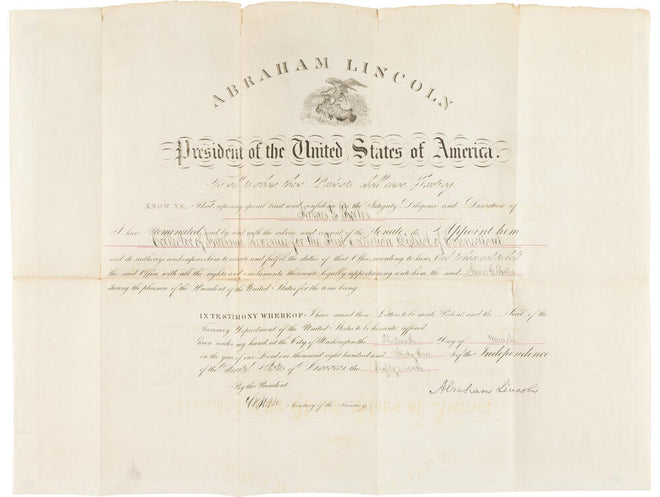 ABRAHAM LINCOLN
President of the United States of America.
To all to whom these Presents shall come Greeting
KNOW YE, That, reposing special trust and confidence in the Integrity, Diligence and Discretion of
I have Nominated, and by and with the advice and consent of the Senate, do Appoint him
Collector of Internal Revenue for the First Collection District of Connecticut
and do authorize and empower him to execute and fulfil the duties of that Office according to law, And to have and to hold
the said Office with all the rights and emoluments thereunto legally appertaining unto him the said
during the pleasure of the President of the United States for the time being.
IN TESTIMONY WHEREOF, I have caused these Letters to be made Patent, and the Seal of the
Treasury Department of the United States to be hereunto affixed.
Given under my hand, at the City of Washington the Day of March
in the year of our Lord one thousand eight hundred and of the Independence
of the United States of America the
By the President
Secretary of the Treasury.
Abraham Lincoln